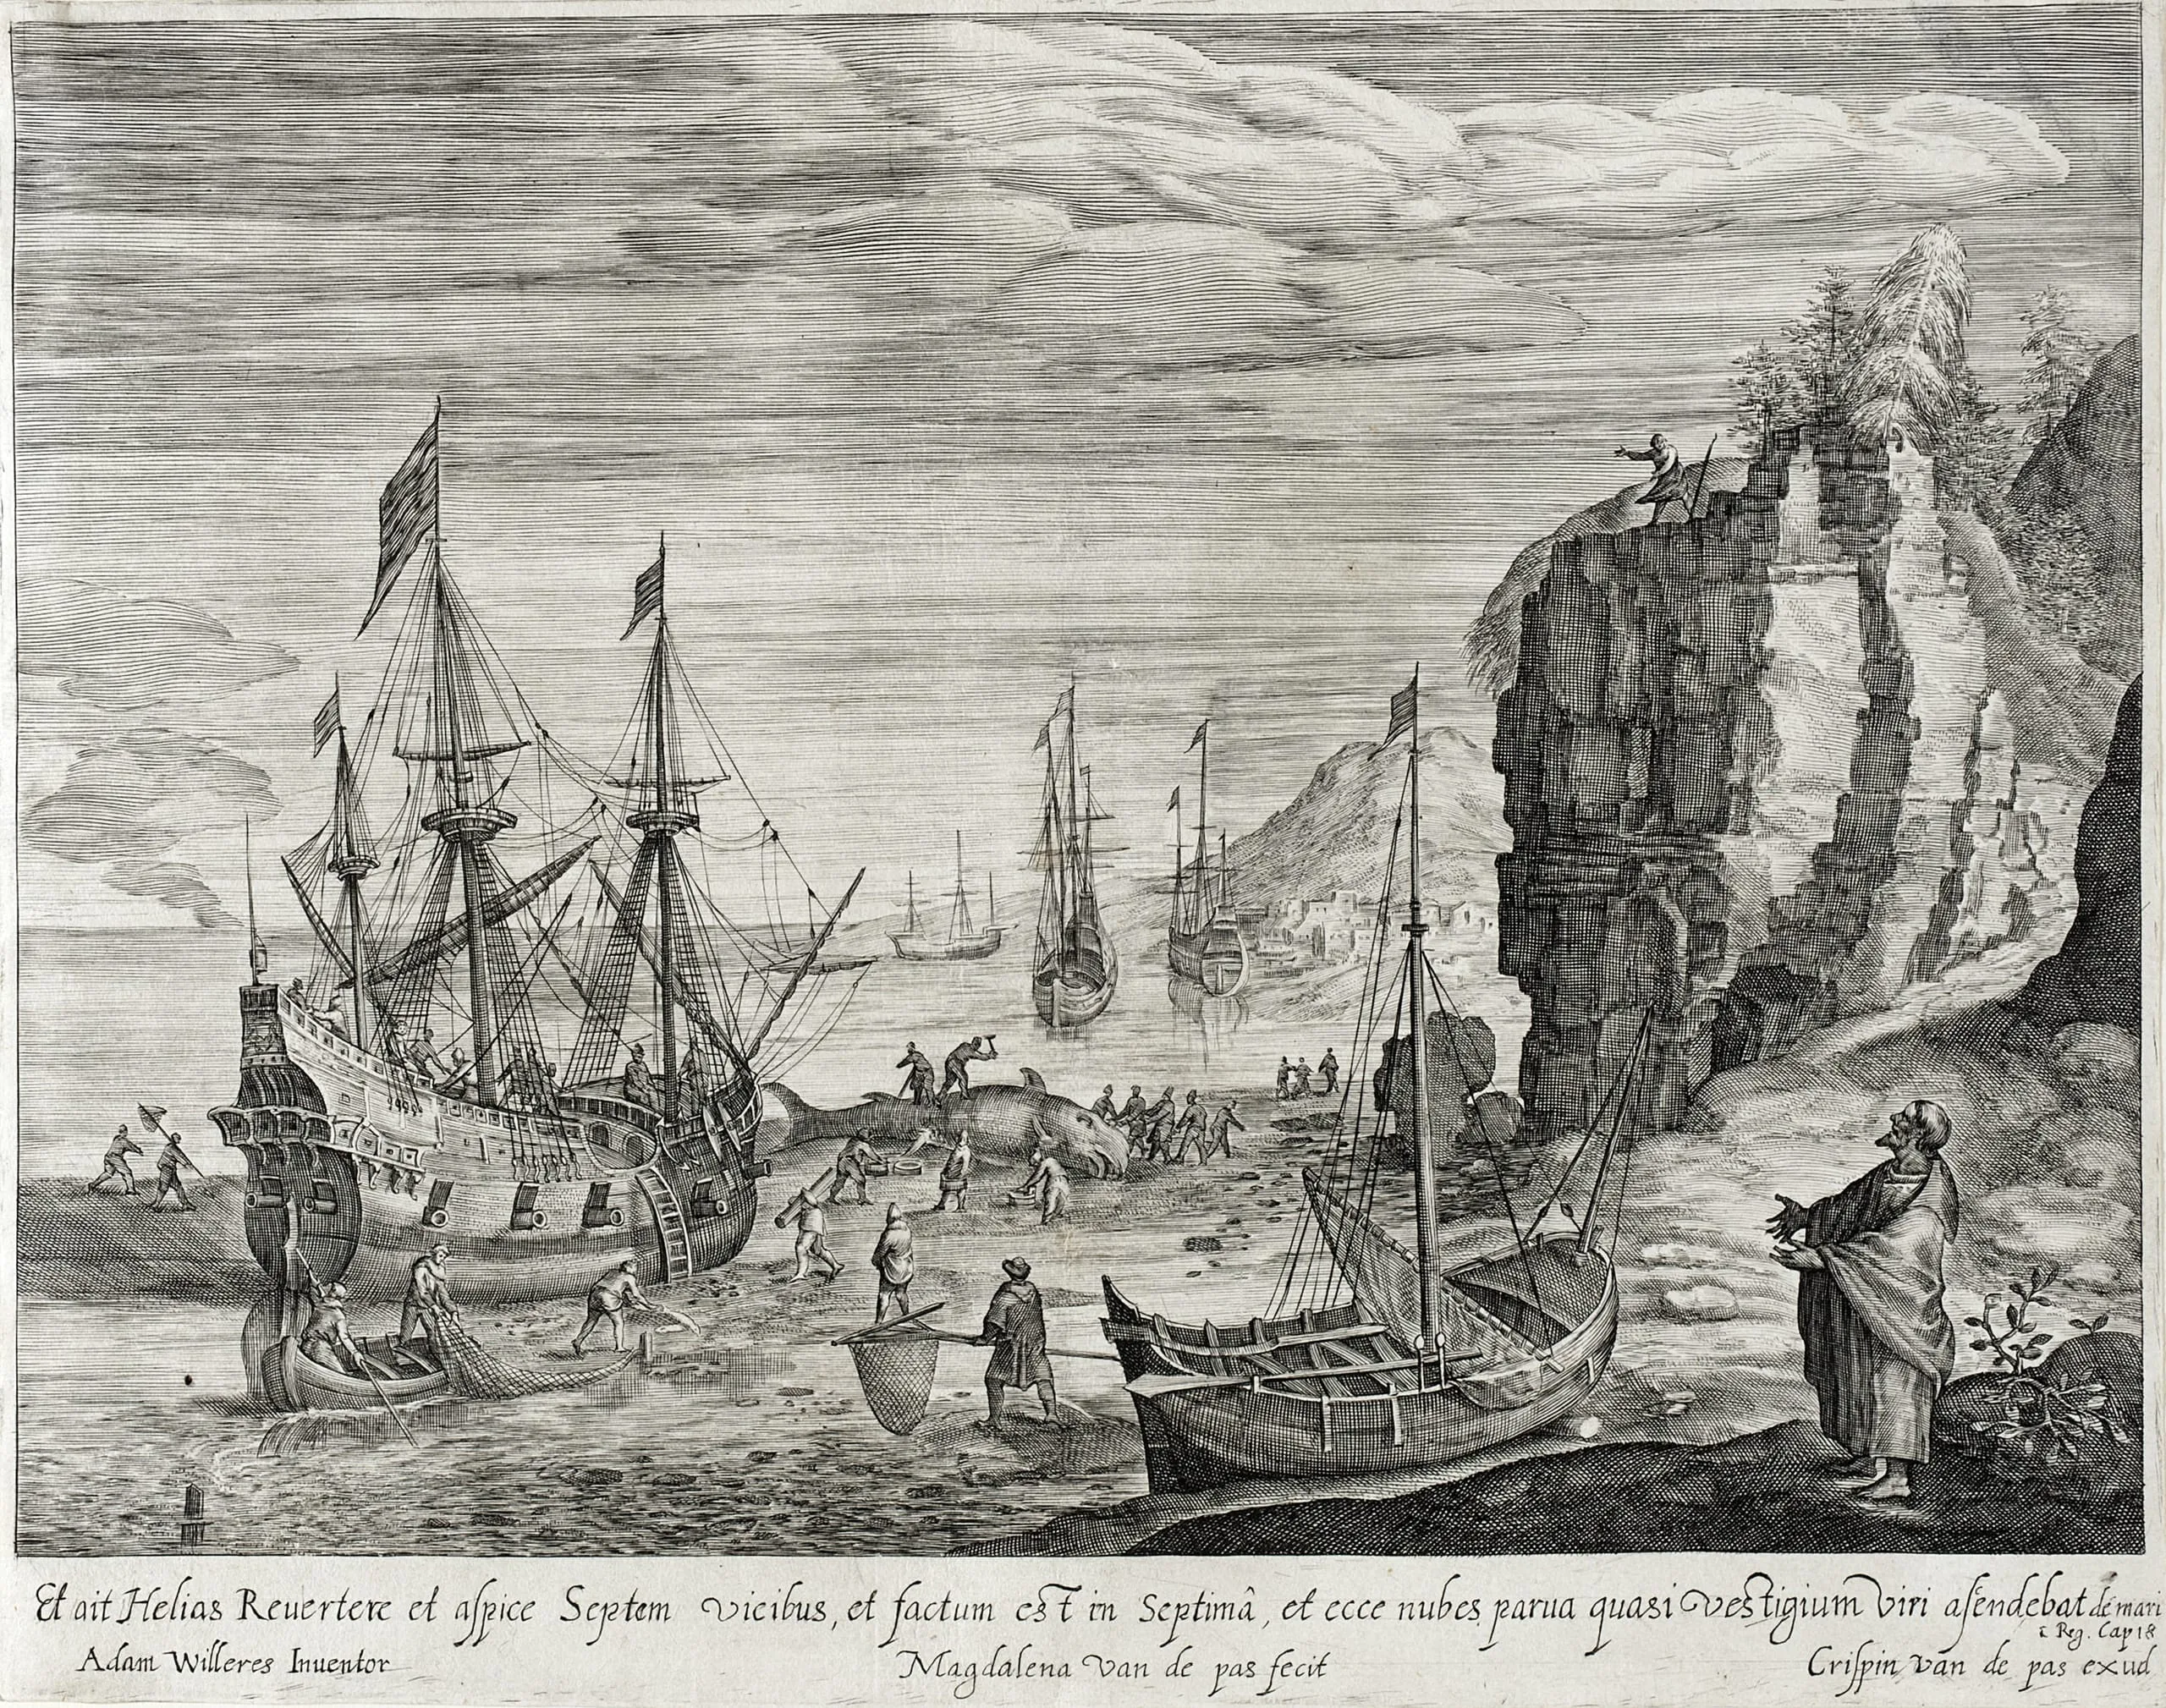 Et ait Helias Reuertere et aſpice Septem vicibus, et factum est in Septimâ, et ecce nubes parua quasi vestigium viri asēndebat de mari
Reg. Cap 18
Adam Willeres Inuentor Magdalena van de pas fecit Criſpin van de pas exud